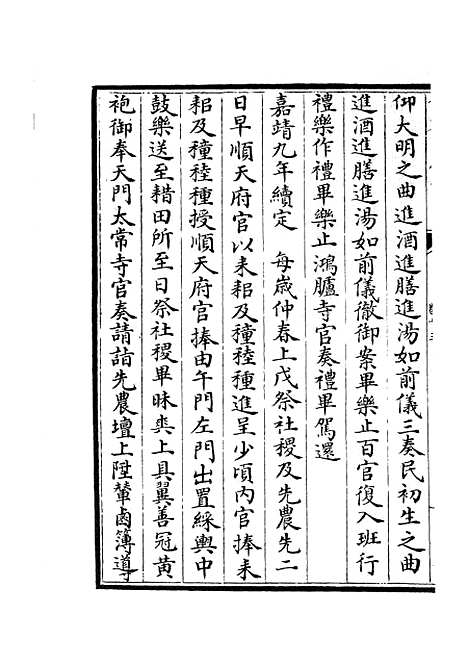 仰大明之曲進酒進膳進湯如前儀三奏民初生之曲
進酒進膳進湯如前儀徹御案畢樂止百官復入班行
禮樂作禮畢樂止鴻臚寺官奏禮畢駕還
嘉靖九年續定　每歲仲春上戊祭社稷及先農先二
日早順天府官以耒耜及穜稑種進呈少頃內官捧耒
耜及穜稑種授順天府官捧由午門左門出置綵輿中
鼓樂送至耤田所至日祭社稷畢昧爽上具翼善冠黃
袍御奉天門太常寺官奏請詣先農壇上陞輦鹵簿導